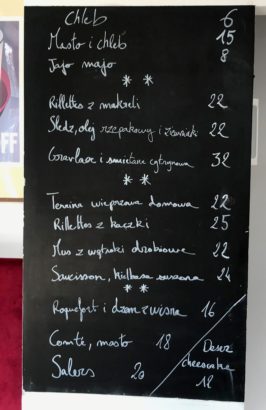 Chleb 6
Masło i chleb 15
Jajo majo 8
* *
Rillettes z makreli 22
Śledź, olej rzepakowy i ziemniaki 22
Gravlax i śmietana cytrynowa 32
* *
Terrina wieprzowa domowa 22
Rillettes z kaczki 25
Mus z wątróbki drobiowej 22
Saucisson, kiełbasa suszona 24
Roquefort i dżem z wiśni 16
Comté, masło 18
Salers 20
Deser
cheesecake
18
FF